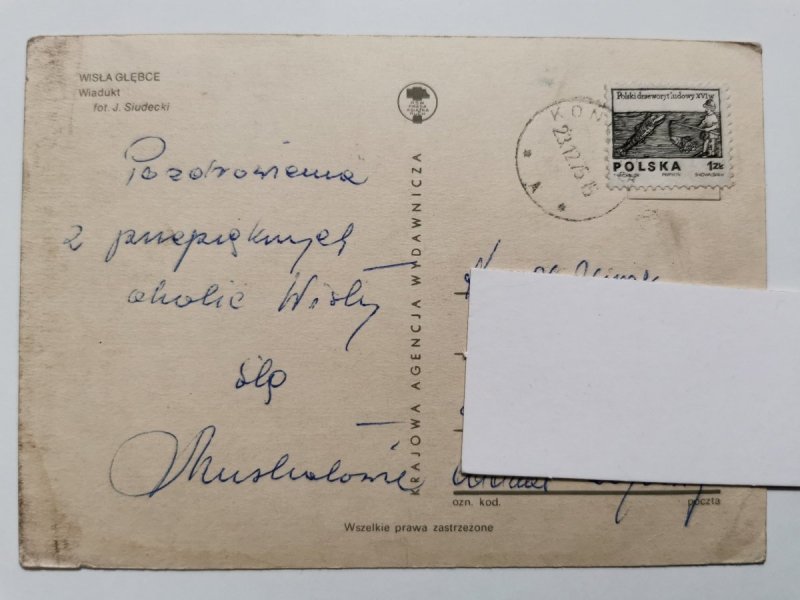 WISŁA GŁĘBCE
Wiadukt
fot. J. Siudecki
Polski drzeworyt ludowy XVI w
POLSKA 1ZŁ
KON
23.12.75
A
Pozdrowienia
z przepięknych
okolic Wisły
ślą
KRAJOWA AGENCJA WYDAWNICZA
ozn. kod. poczta
Wszelkie prawa zastrzeżone